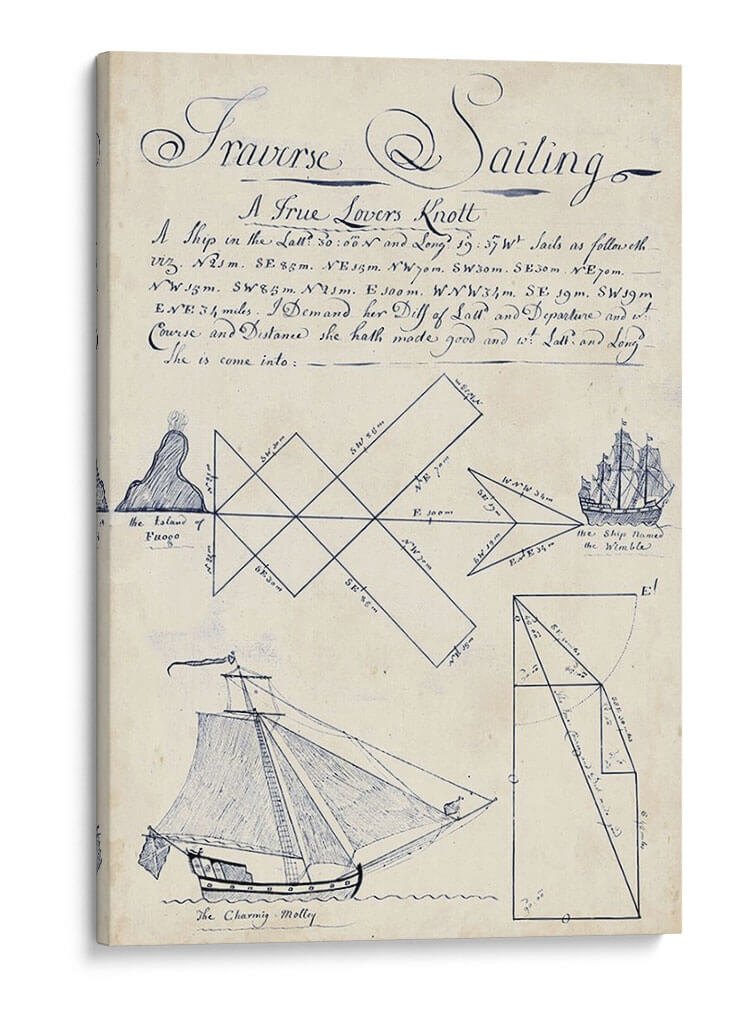 Traverse Sailing
A True Lovers Knott
A Ship in the Lattd. 30:00 N and Longd. 19:37 Wt. Sails as followeth
viz. N 21m. SE 85m. NE 15m. NW 70m. SW 30m. SE 30m. NE 70m.
NW 15m. SW 85m. N 21m. E 100m. WNW 34m. SE 19m. SW 19m
ENE 34 miles. I Demand her Diff of Lattd. and Departure and wt.
Course and Distance she hath made good and wt. Lattd. and Longd.
She is come into:
SW 30m
SW 85m
NE 70m
WNW 34m
SE 19m
N 21m
E 100m
the Island of
Fuogo
the Ship Named
the Wimble
NW 70m
SW 19m
ENE 34m
N 21m
SE 30m
SE 85m
NE 15m
E
The Charmig Molley